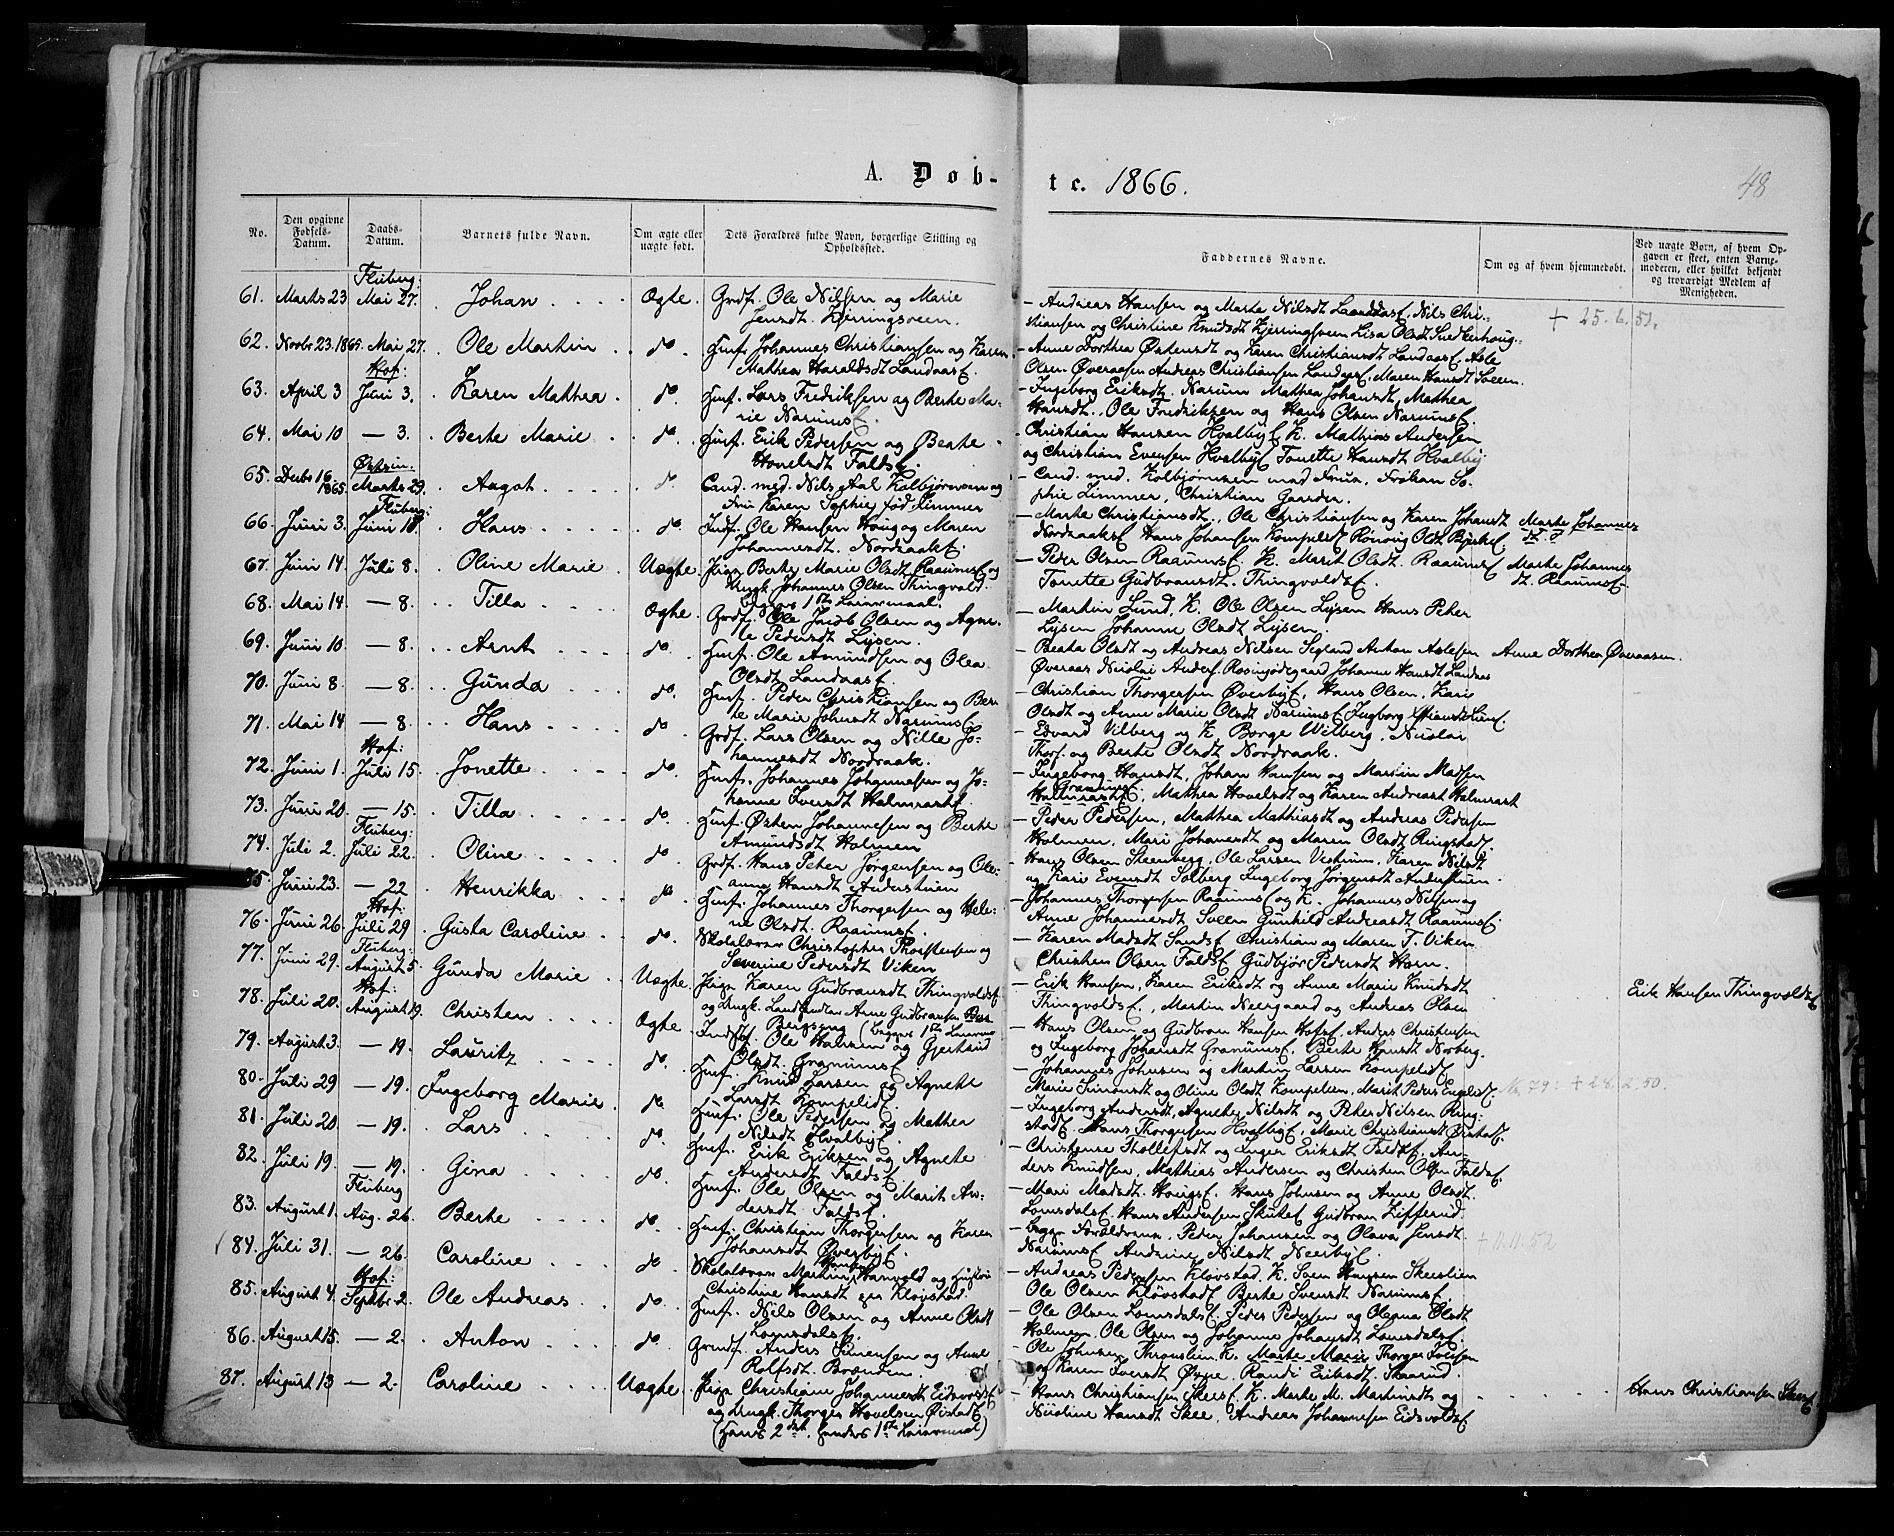 A. Døb-
t c. 1866.
48
No.
Den opgivne Fødsels-Datum.
Daabs-Datum.
Barnets fulde Navn.
Om ægte eller uægte født.
Dets Forældres fulde Navn, borgerlige Stilling og Opholdssted.
Faddernes Navne.
Om og af hvem hjemmedøbt.
Ved uægte Børn, af hvem Opgaven er skeet, enten Barnemoderen, eller hvilket bekjendt og troværdigt Medlem af Menigheden.
Fluberg:
61. Marts 23 Mai 27. Johan Ægte Grdf. Ole Nilsen og Marie
Jensdt. Kjerringsveen.
Andreas Hansen og Marthe Nilsdt Landaasf. Nils Chri-
stiansen og Christine Knudsdt Kjerringsveen Lisa Olsdt
+ 25.6.52.
62. Novbr 23. 1865. Mai 27. Ole Martin do. Husf. Johannes Christiansen og Karen
Mathea Haraldsdt Landaasf.
Anne Dorthea Østensdt og Karen Christiansdt Landaasf. Asle
Olsen Øveraasen Andreas Christiansen Landaasf. Maren Hansdt Sveen.
Hof:
63. April 3 Juni 3. Karen Mathea do. Husf. Lars Fredriksen og Berte Ma-
rie Narumsf.
Ingeborg Eriksdt. Narum Mathea Johansdt, Mathea
Hansdt., Ole Fredriksen og Hans Olsen Narumsf.
64. Mai 10 — 3. Berte Marie do. Husf. Erik Pedersen og Beate
Hovelsdt Faldsf.
Christian Hansen Hvalbyf K. Mathias Andersen
og Christian Evensen Hvalbyf Tonette Hansdt Hvalby
Østsin:
65. Decbr 16 1865. Marts 29. Aagot do Cand. med. Nils Aal Kolbjørnsen og
Frue Karen Sophie født Zimmer
Cand. med. Kolbjørnsen med Frue, Frøken So-
phie Zimmer, Christian Gaarder.
Fluberg:
66. Juni 3. Juni 10. Hans do. Indf. Ole Hansen Haug og Maren
Johannesdt. Nordraakf.
Marthe Christiansdt., Ole Christiansen og Karen Johansdt
Nordraakf Hans Johansen Kompelidf Rønnoug Olsdt Bjerkef.
Marthe Johannes-
dt
67. Juni 14 Juli 8. Oline Marie Uægte Pige Berte Marie Olsdt Raaumsf. og
Ungk. Johannes Olsen Thingvold.
Begges 1ste Leiermaal.
Peder Olsen Raaumsf. K. Marit Olsdt. Raaumsf
Tonette Gudbrandsdt. Thingvoldsf.
Marthe Johannes
dt. Raaumsf.
68. Mai 14. — 8. Tilla Ægte. Grdf. Ole Jacob Olsen og Agne-
te Pedersdt Lysen.
Martin Lund, K. Ole Olsen Lysen Hans Peter
Lysen Johanne Olsdt Lysen.
69. Juni 10 — 8. Arnt do. Husf. Ole Amundsen og Olea
Olsdt Landaasf.
Beata Olsdt og Andreas Nilsen Segland Anton Aslesen
Øveraas Nicolai Andersf. Rosingødegaard Johanne Hansdt Landaas
Anne Dorthea Øveraasen.
70. Juni 8 — 8. Gunda do. Husf. Peder Christiansen og Ber
te Marie Johnsdt Narumsf.
Christian Thorgersen Øverbyf, Hans Olsen, Kari
Olsdt og Anne Marie Olsdt Narumsf Ingborg
71. Mai 14 — 8. Hans do. Grdf. Lars Olsen og Nille Jo-
hannesdt Nordraak.
Edvard Vilberg og K. Borge Vilberg, Nicolai
Thorsf. og Berte Olsdt Nordraak.
Hof:
72. Juni 1. Juli 15. Jonette do. Husf. Johannes Johannesen og Jo-
hanne Iversdt Halmrastf.
Ingeborg Hansdt, Johan Hansen og Martin Madsen
Halmrastf. Mathea Hovelsdt og Karen Andreasdt Halmrast
73. Juni 20. — 15. Tilla do. Husf. Østen Johannesen og Berte
Amundsdt Holmen
Peder Pedersen, Mathea Mathiasdt og Andreas Pedersen
Holmen, Mari Johannesdt og Maren Olsdt Ringstad.
Fluberg:
74. Juli 2. Juli 22. Oline do. Grdf. Hans Peter Jørgensen og Ole-
anna Hansdt Anderstuen
Hans Olsen Steenberg, Ole Larsen Vestrum, Karen Nilsdt
og Kari Evensdt Solberg Ingeborg Jørgensdt Anderstuen.
75. Juni 23. — 22 Henrikka do. Husf. Johannes Thorgersen og Hele-
ne Olsdt. Raaumsf.
Johannes Thorgersen Raaumsf og K. Johannes Nilsen og
Anne Johannesdt Sveen Gunhild Andreasdt Raaumsf.
Hof:
76. Juni 26. Juli 29 Gusta Caroline do. Skolelærer Christopher Thorstensen og
Severine Pedersdt Viken
Karen Madsdt Sandsf Christian og Maren T. Viken
Christen Olsen Faldsf Gudbjør Pedersdt Horn.
Fluberg:
77. Juni 29. August 5. Gunda Marie Uægte. Pige Karen Gudbransdt Thingvoldsf
og Ungk. Landhandler Arne Gudbransen
Bergseng (begges 1ste Leierm.
Erik Hansen, Karen Eriksdt og Anne Marie Knudsdt
Thingvoldsf., Martin Neergaard og Andreas Olsen
Erik Hansen Thingvoldsf
Hof:
78. Juli 20. August 19. Christen Ægte. Indstf. Ole Halvsen og Gjertrud
Olsdt Granumsf.
Hans Olsen og Gudbran Hansen Hofsf. Anders Christensen
og Ingeborg Johansdt Granumsf. Berte Hansdt Norberg.
79. August 3. — 19. Lauritz do. Husf. Knud Larsen og Agnete
Larsdt Kompelidf.
Johannes Johnsen og Martin Larsen Kompelidf
Marie Simensdt og Oline Olsdt Kompelien, Marit Peders Engelidf.
No. 79: + 28.2.50.
80. Juli 29 — 19. Ingeborg Marie do. Husf. Ole Pedersen og Mathea
Nilsdt Hvalbyf.
Ingeborg Andersdt, Agnethe Nilsdt og Peter Nilsen Ring-
stadf. Hans Thorgersen Hvalbyf, Marie Christiansdt
81. Juli 20. — 19. Lars do. Husf. Erik Eriksen og Agnete
Andersdt Faldsf.
Christense Thollefsdt og Inger Eriksdt Faldsf, An-
ders Knudsen, Mathias Andersen og Christen Olsen Faldsf.
82. Juli 19. — 19. Gina do. Husf. Ole Olsen og Marit An-
dersdt Faldsf.
Mari Madsdt. Hougsf. Hans Johnsen og Anne Olsdt.
Lomsdalsf. Hans Andersen Skutef Gudbran Zifferud.
Fluberg
83. August 1. Aug. 26. Berte do. Husf. Christian Thorgersen og Karen
Johansdt Øverbyf.
Begge Forældrene, Peder Johansen og Olava Jensdt.
Narumsf Andrine Nilsdt Neerbyf.
+ 11.11.52
84. Juli 31. — 26. Caroline do. Skolelærer Martin Hansen Harvold og Hustru
Christine Hansdt paa Kløvstad
Andreas Pedersen Kløvstad. K. Sven Hansen Skeeslien
Ole Olsen Kløvstad Berte Svensdt Narumsf.
Hof:
85. August 4. Septbr 2. Ole Andreas do. Husf. Nils Olsen og Anne Olsdt
Lomsdalsf.
Ole Olsen Lomsdalsf. Peder Pedersen og Oleana Olsdt
Holmen, Ole Olsen og Johanne Johansdt Lomsdalsf.
86. August 15. — 2. Anton do. Grmdf. Anders Simensen og Anne
Rolfsdt. Brænden.
Ole Johnsen Thronslien K. Marte Marie Thorger Iversen
og Karen Iversdt Øvne, Randi Eriksdt Skaarud.
87. August 13 — 2. Caroline Uægte. Pige Christiane Johannesdt Eidsvoldsf
og Ungk. Thorger Hovelsen Øistadf
(Hans 2det, hendes 1ste Leiermaal)
Hans Christiansen Skeesf. K. Marte M. Martinsdt og
Nicoline Hansdt Skee, Andreas Johannesen Eidsvoldsf
Hans Christiansen Skeesf